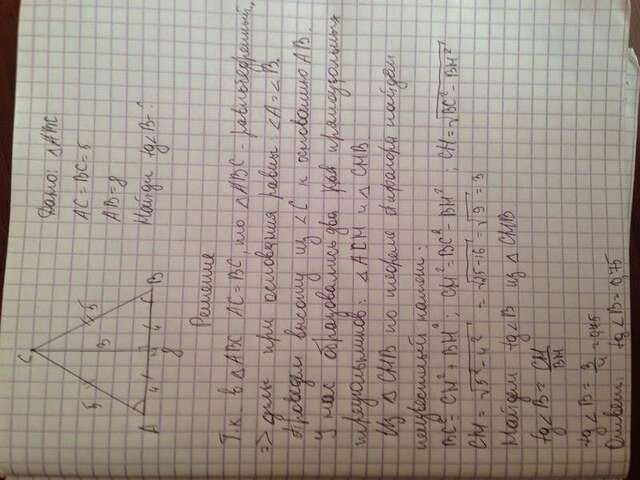 C
5
5
3
4
4
A
H
B
8
Дано: △ABC
AC=BC=5
AB=8
Найти tg∠B-?
Решение
Т.к. в △ABC AC=BC, то △ABC - равнобедренный,
=> углы при основания равны: ∠A=∠B.
Проведем высоту из ∠C к основанию AB.
У нас образовались два рав прямоугольных
треугольников: △ACH и △CHB
Из △CHB по теореме Пифагора найдем
неизвестный катет:
BC²=CH²+BH²; CH²=BC²-BH²; CH=√BC²-BH²
CH=√5²-4² = √25-16 = √9 = 3
Найдем tg∠B из △CHB
tg∠B= CH/BH
tg∠B= 3/4 =0,75
Ответ: tg∠B=0,75